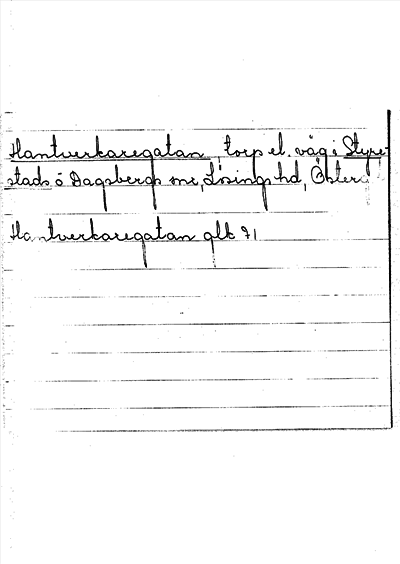 Hantverkaregatan, torp el. väg i Styre-
stads o Dagsbergs snr, Lösings hd, Öster
Hantverkaregatan glk 71